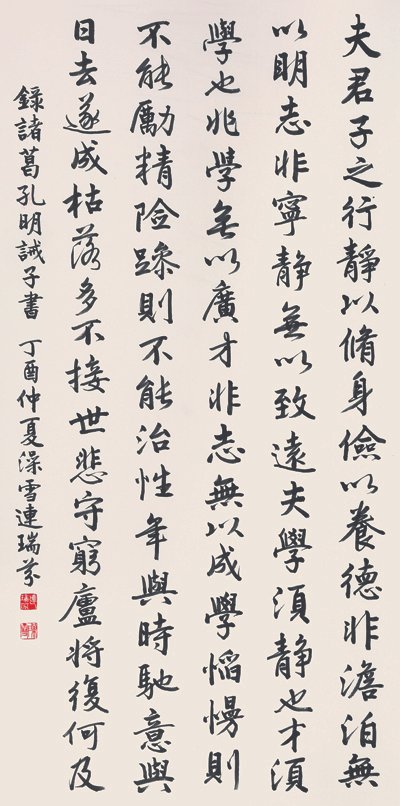 夫君子之行靜以脩身儉以養德非澹泊無
以明志非寧靜無以致遠夫學須靜也才須
學也非學無以廣才非志無以成學慆慢則
不能勵精險躁則不能治性年與時馳意與
日去遂成枯落多不接世悲守窮廬將復何及
錄諸葛孔明誡子書 丁酉仲夏澡雪連瑞芬